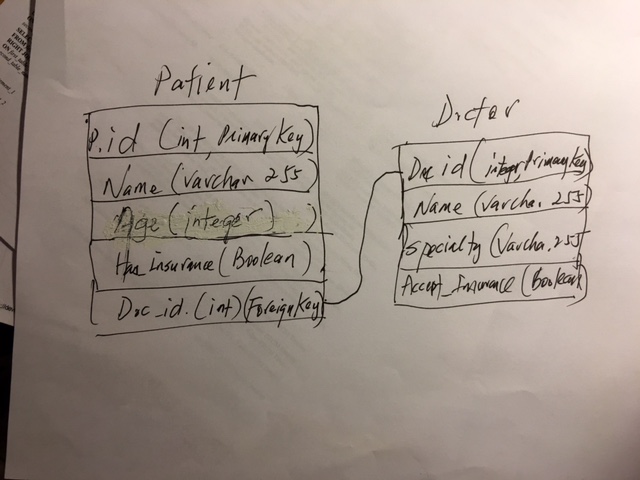 Patient
P.id (int, Primary Key)
Name (Varchar 255)
Age (integer)
Has_insurance (Boolean)
Doc_id. (int) (Foreign Key)
Doctor
Doc id (integer, Primary Key)
Name (Varchar. 255)
Specialty (Varchar. 255)
Accept_Insurance (Boolean)